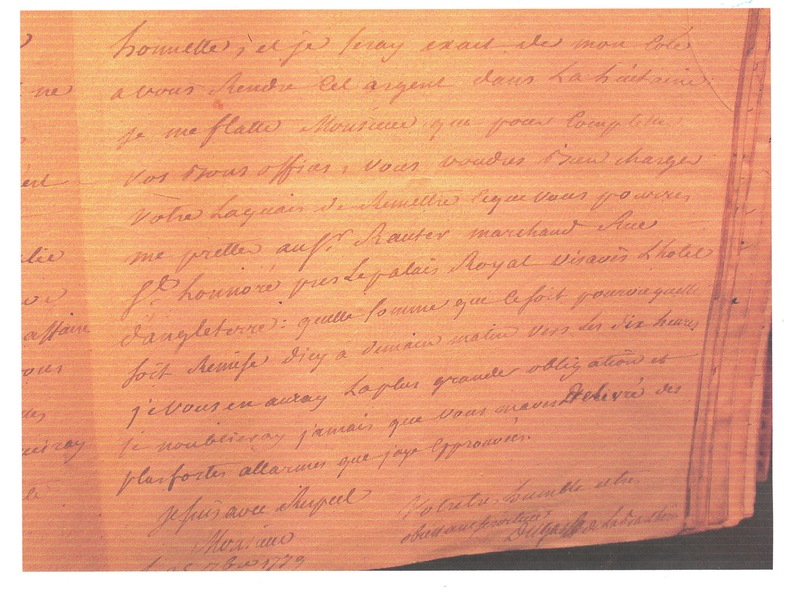 ne
honnette, et je seray exact de mon coté
a vous Rendre cet argent dans La huitaine.
je me flatte Monsieur que pour Completer
vos bons offices, vous voudres bien charger
Votre Laquais de Remettre ceque vous pourres
me pretter au Sr. Rauter marchand Rue
St. honnoré pres Lepalais Royal visavis L'hotel
d'angleterre: quelle somme que cesoit pourvuquelle
soit Remise d'icy à demain matin vers les dix heures
affaire
je vous en auray La plus grande obligation et
je noublieray jamais que vous maves délivré des
plus fortes allarmes que jaye Epprouvées.
je suis avec Respect
Monsieur
Votre tres humble et tres
obeissant serviteur
7bre 1779